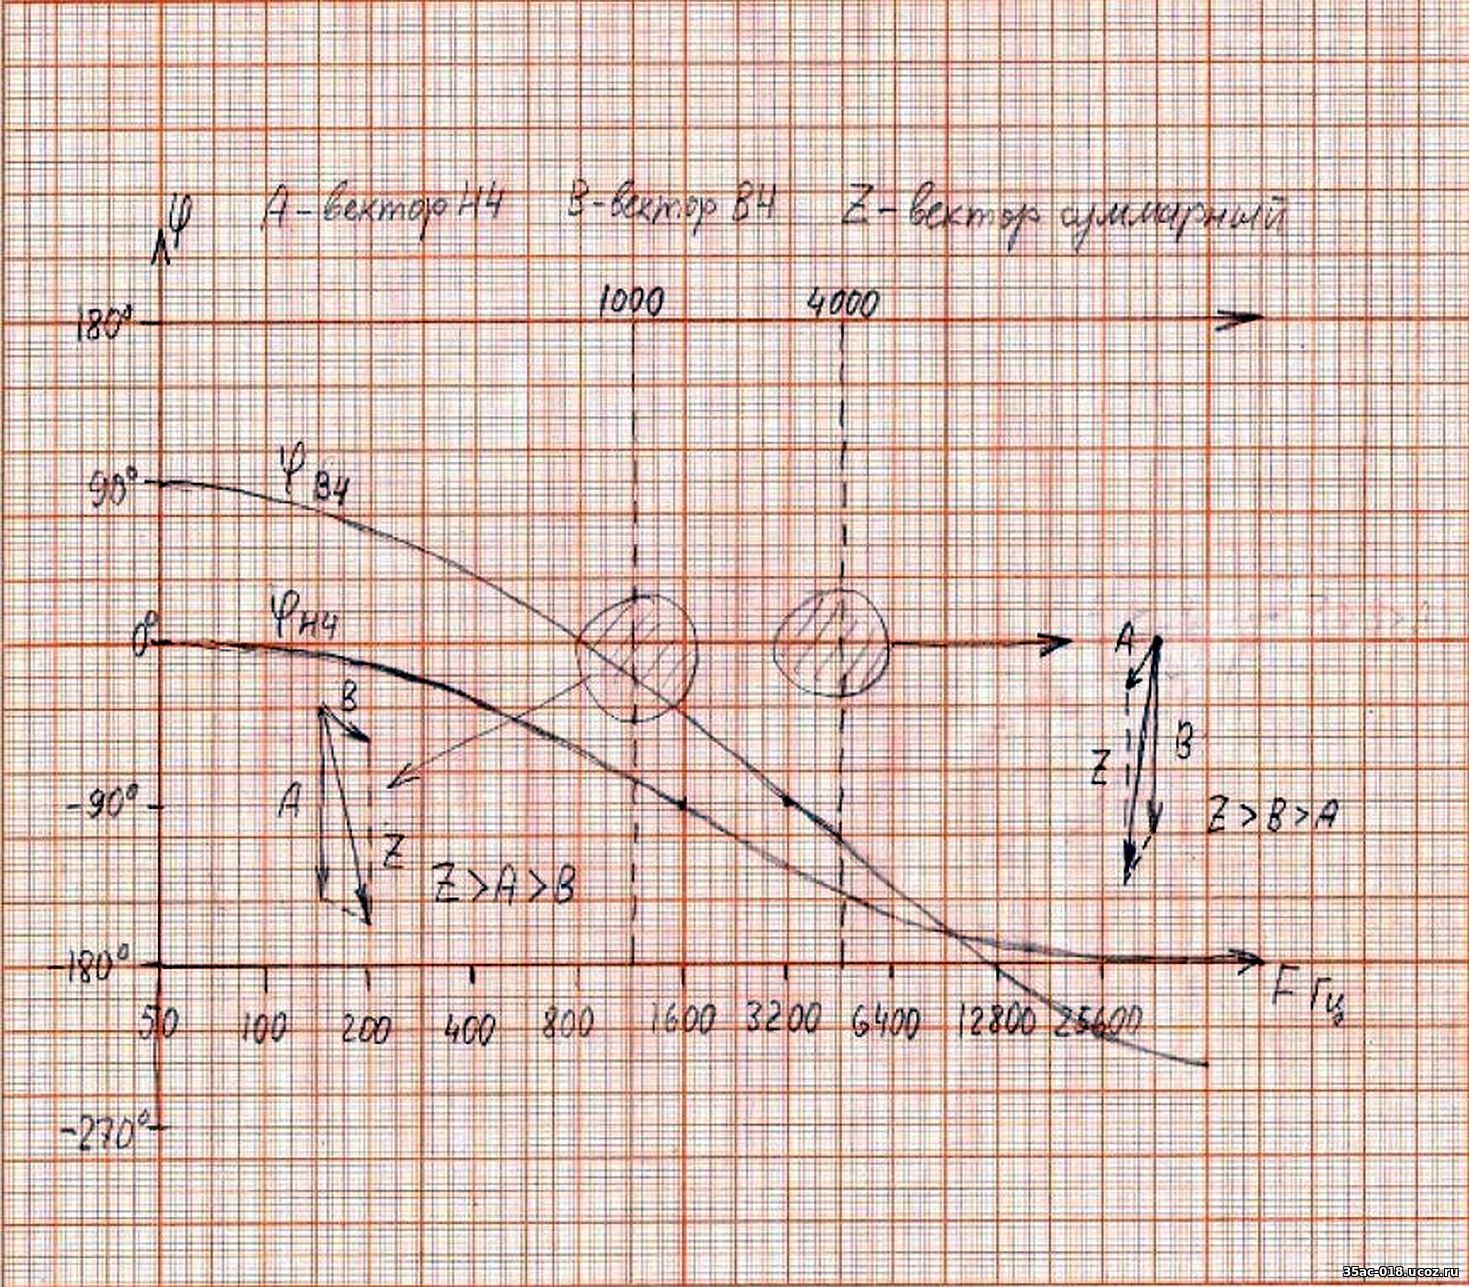 φ А-вектор НЧ В-вектор ВЧ Z-вектор суммарный
1000 4000
180°
90°
φВЧ
0°
φНЧ
А
В
А
Z
Z>A>B
В
Z
Z>B>A
-90°
-180°
F Гц
50 100 200 400 800 1600 3200 6400 12800 25600
-270°
35ac-018.ucoz.ru